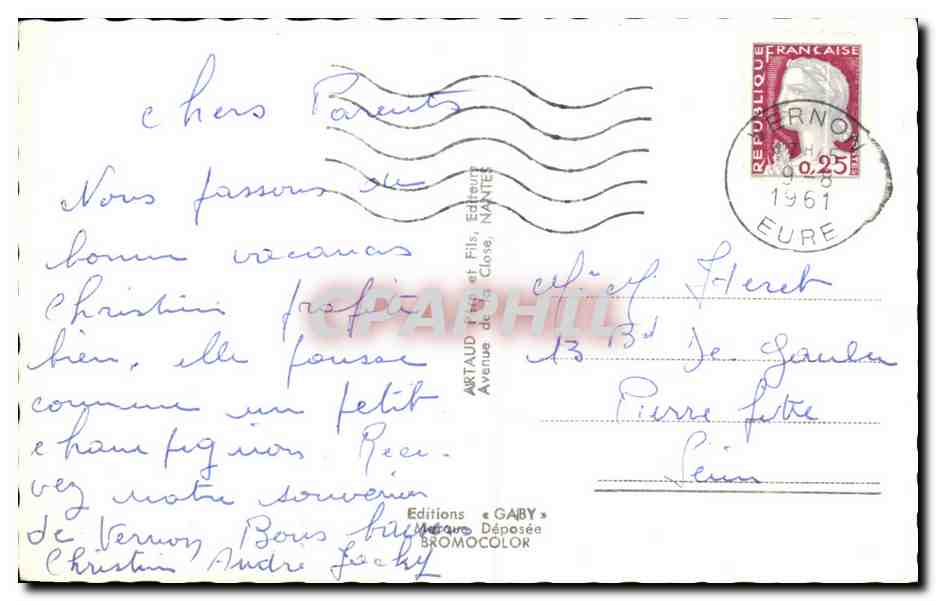 Chers Parents
Nous passons de
bonne vacances
Christine profite
bien, elle pousse
comme un petit
champignon. Rece-
vez notre souvenir
de Vernon Bons baisers
Christine André Jacky
AIRTAUD Père et Fils, Editeurs
Avenue de la Close, NANTES
Editions « GABY »
Marque Déposée
BROMOCOLOR
CPAPHIL
REPUBLIQUE FRANCAISE
0,25
VERNON
9-8
1961
EURE
Mr M Heret
13 Bd De Gaulle
Pierre fitte
Seine